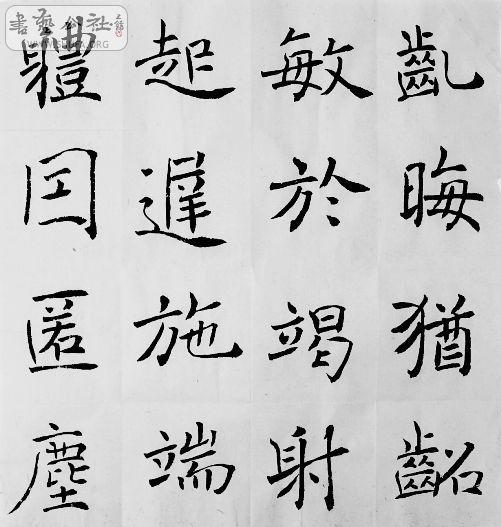 書藝公社
齓晦猶齠
敏於竭射
起遅施端
體囙匿塵